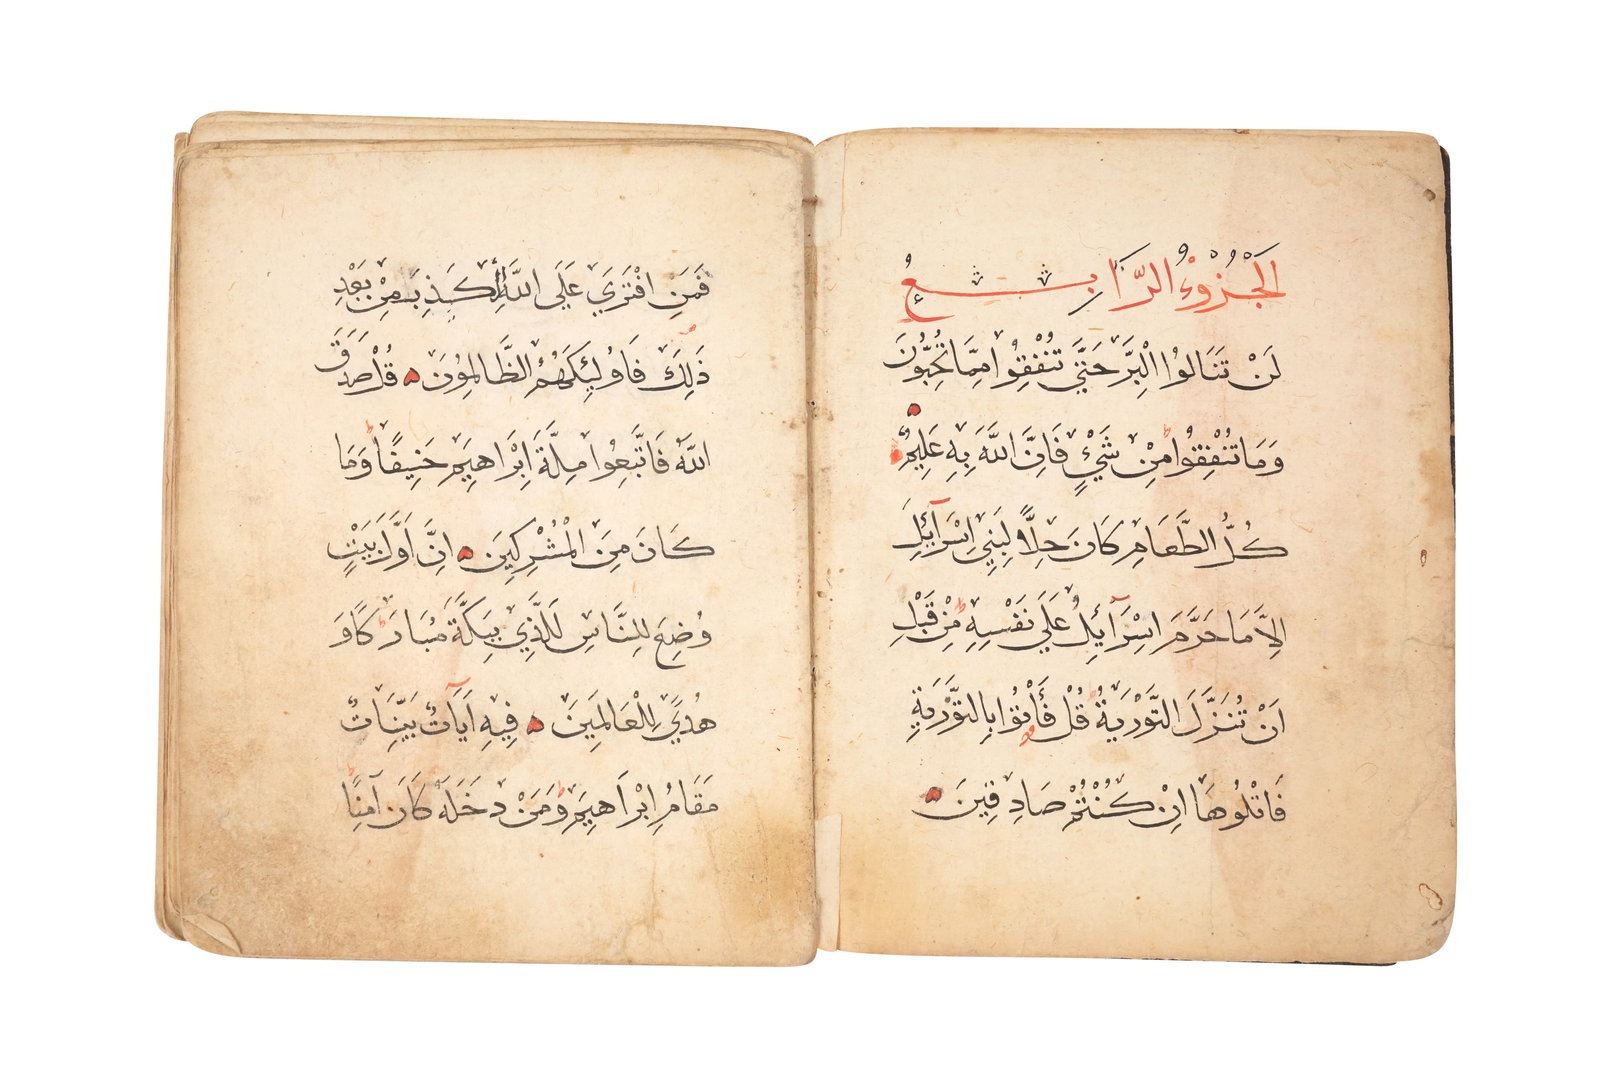 الْجُزْوءُ الرَّابِعُ
لَنْ تَنَالُوا الْبِرَّ حَتَّي تُنْفِقُوا مِمَّا تُحِبُّونَ
وَمَا تُنْفِقُوا مِنْ شَيْءٍ فَاِنَّ اللَّهَ بِهِ عَلِيمٌ
كُلُّ الطَّعَامِ كَانَ حِلًّا لِبَنِي اِسْرَآئِلَ
اِلَّا مَا حَرَّمَ اِسْرَآئِلُ عَلَي نَفْسِهِ مِنْ قَبْلِ
اَنْ تُنَزَّلَ التَّوْرَيةُ قُلْ فَأْتُوا بِالتَّوْرَيةِ
فَاتْلُوهَا اِنْ كُنْتُمْ صَادِقِينَ
فَمَنِ افْتَرَي عَلَي اللَّهِ الْكَذِبَ مِنْ بَعْدِ
ذَلِكَ فَاُولَئِكَ هُمُ الظَّالِمُونَ قُلْ صَدَقَ
اللَّهُ فَاتَّبِعُوا مِلَّةَ اِبْرَاهِيمَ حَنِيفًا وَمَا
كَانَ مِنَ الْمُشْرِكِينَ اِنَّ اَوَّلَ بَيْتٍ
وُضِعَ لِلنَّاسِ لَلَّذِي بِبَكَّةَ مُبَارَكًا وَ
هُدًي لِلْعَالَمِينَ فِيهِ آيَاتٌ بَيِّنَاتٌ
مَقَامُ اِبْرَاهِيمَ وَمَنْ دَخَلَهُ كَانَ آمِنًا